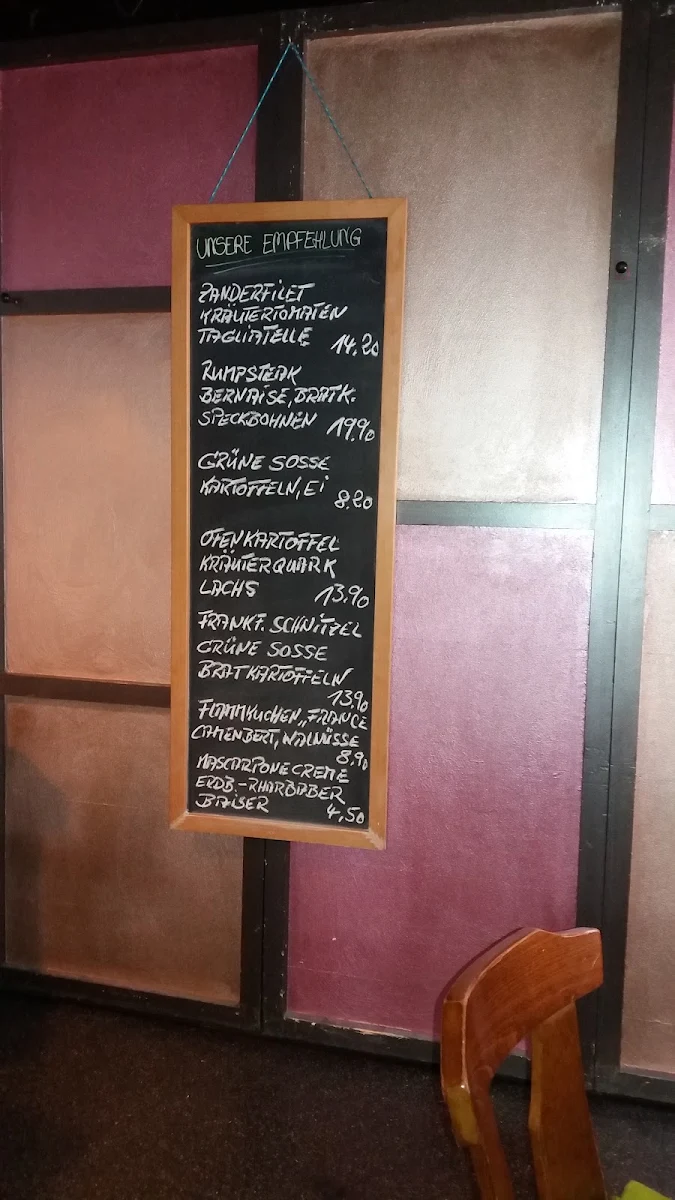 UNSERE EMPFEHLUNG
ZANDERFILET
KRÄUTERTOMATEN
TAGLIATELLE 14,20
RUMPSTEAK
BERNAISE, BRATK.
SPECKBOHNEN 19,90
GRÜNE SOSSE
KARTOFFELN, Ei
8,20
OFENKARTOFFEL
KRÄUTERQUARK
LACHS 13,90
FRANKF. SCHNiTZEL
GRÜNE SOSSE
BRATKARTOFFELN
13,90
FLAMMKUCHEN „FRANCE
CAMENBERT, WALNÜSSE
8,90
MASCARPONECREME
ERDB.-RHABARBER
BAiSER 4,50